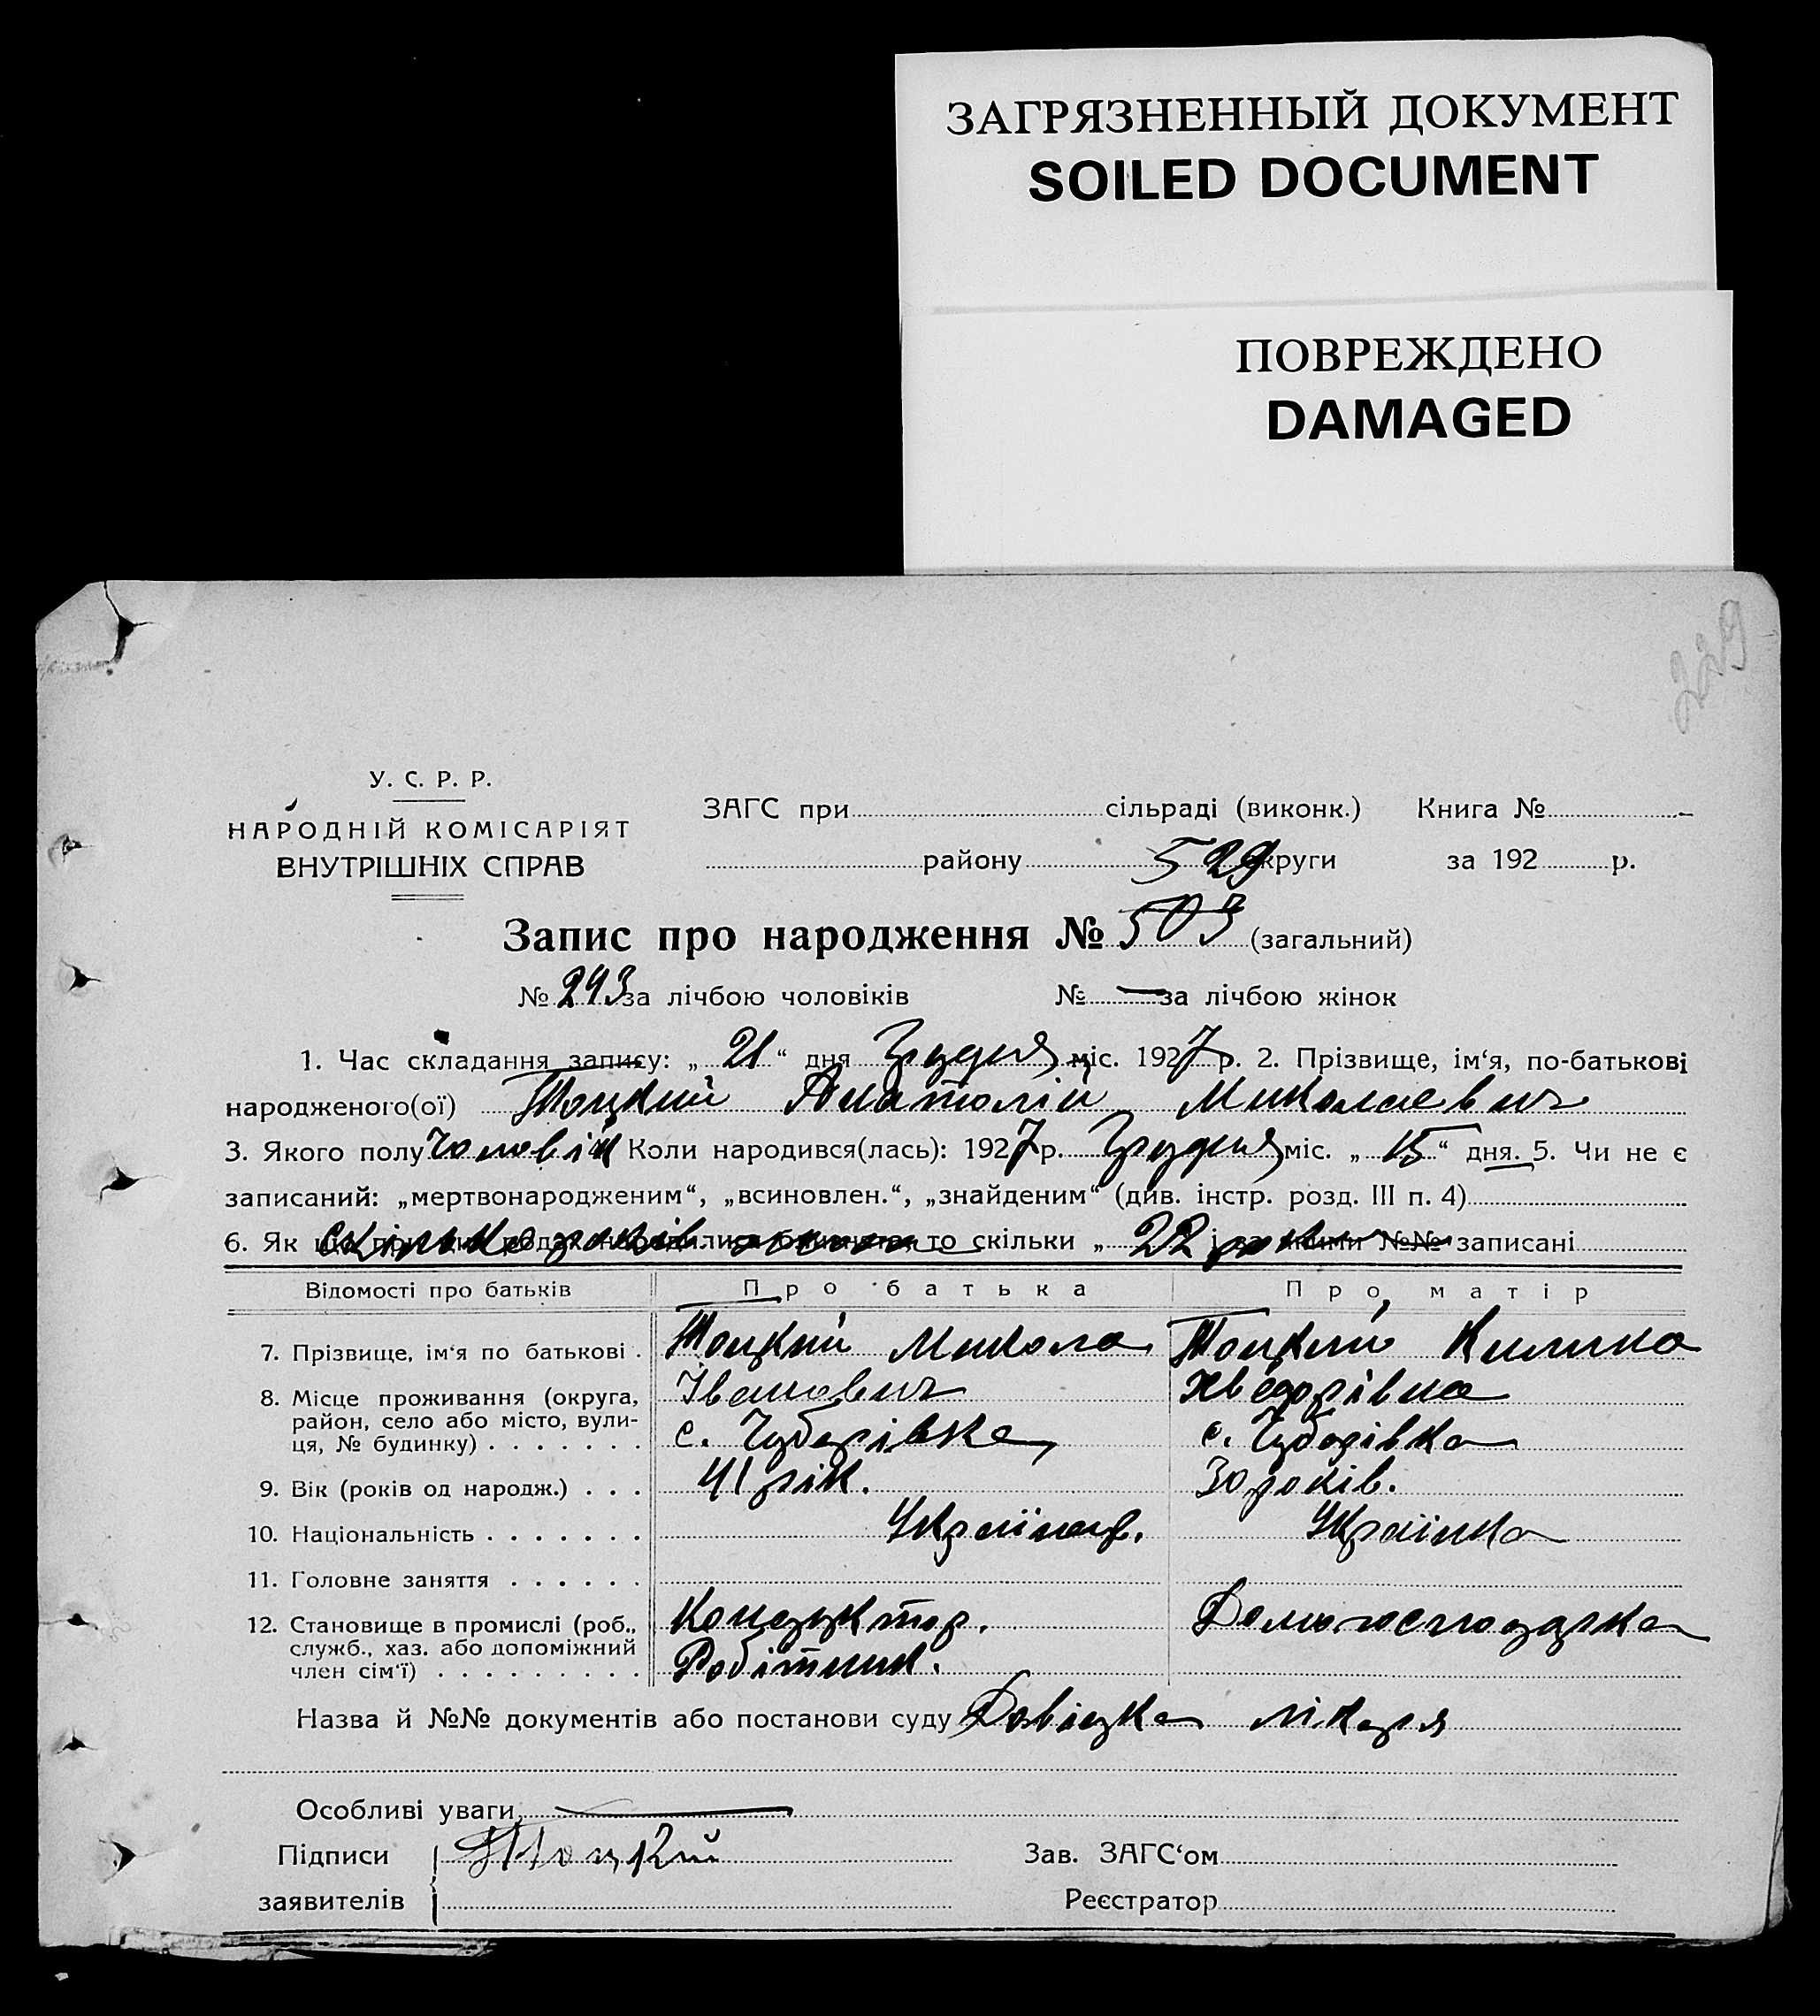 ЗАГРЯЗНЕННЫЙ ДОКУМЕНТ
SOILED DOCUMENT
ПОВРЕЖДЕНО
DAMAGED
229
У. С. Р. Р.
НАРОДНІЙ КОМІСАРІЯТ
ВНУТРІШНІХ СПРАВ
ЗАГС при сільраді (виконк.) Книга №
району 529 округи за 192 р.
Запис про народження № 503 (загальний)
№ 243 за лічбою чоловіків № — за лічбою жінок
1. Час складання запису: „ 21 “ дня Грудня міс. 1927 р. 2. Прізвище, ім‘я, по-батькові
народженого(ої) Тоцкий Анатолій Миколаевич
3. Якого полу Чоловік Коли народився(лась): 1927 р. Грудня міс. „ 15 “ дня. 5. Чи не є
записаний: „мертвонародженим“, „всиновлен.“, „знайденим“ (див. інстр. розд. III п. 4)
6. Як то скільки „ 22 і за якими №№ записані
Відомості про батьків Про батька Про матір
7. Прізвище, ім‘я по батькові . Тоцкий Микола Тоцкий Килина
8. Місце проживання (округа, Іванович Хведорівна
район, село або місто, вули-
ця, № будинку) . . . . . . . с. Чубарівка с.
9. Вік (років од народж.) . . . 41 рік. 30 років.
10. Національність . . . . . . . Українец. Українка
11. Головне заняття . . . . . .
12. Становище в промислі (роб., Кондуктор. Домогосподарка
служб., хаз. або допоміжний
член сім‘ї) . . . . . . . . . Робітник.
Назва й №№ документів або постанови суду Довідка лікаря
Особливі уваги, —
Підписи Тоцкий Зав. ЗАГС‘ом
заявителів Реєстратор